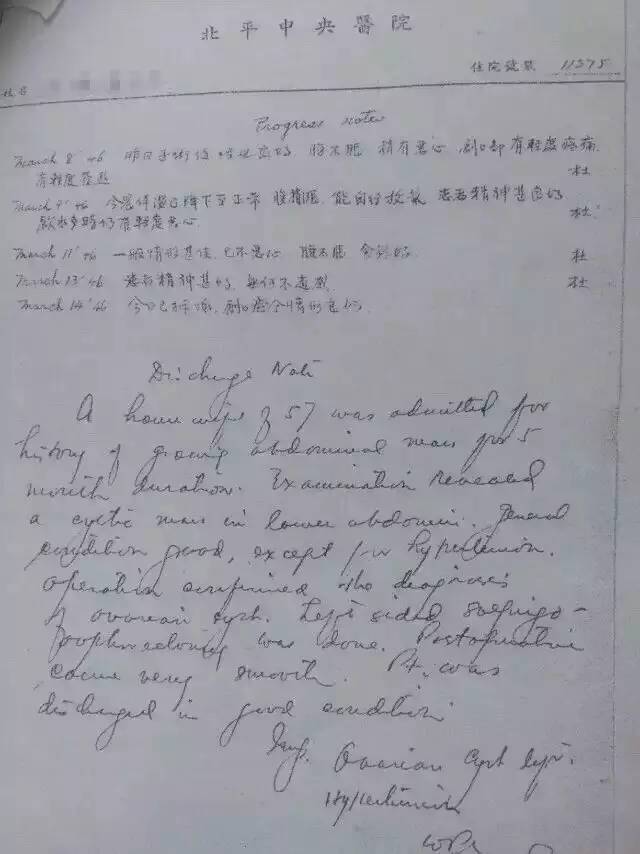 北平中央醫院
住院號數 11375
姓名
Progress notes
March 8' 46 昨日手術後情況良好, 腹不脹 稍有惡心, 刀口部有輕度疼痛
有輕度 杜
March 9' 46 今晨体溫已降下至正常 腹稍脹, 能自行放氣 患者精神甚良好 杜
飲水多時仍有輕度惡心
March 11' 46 一般情形甚佳, 已不惡心 腹不脹 食慾好. 杜
March 13' 46 患者精神甚好, 無何不適感 杜
March 14' 46 今日已拆線, 創口癒合情形良好.
Discharge Note
A housewife of 57 was admitted for
history of growing abdominal mass for 5
month duration. Examination revealed
a cystic mass in lower abdomen. General
condition good, except for hypertension.
Operation confirmed the diagnosis
of ovarian cyst. Left sided salpingo-
oophorectomy was done. Postoperative
course very smooth. Pt. was
discharged in good condition.
Ovarian cyst left.
Hypertension